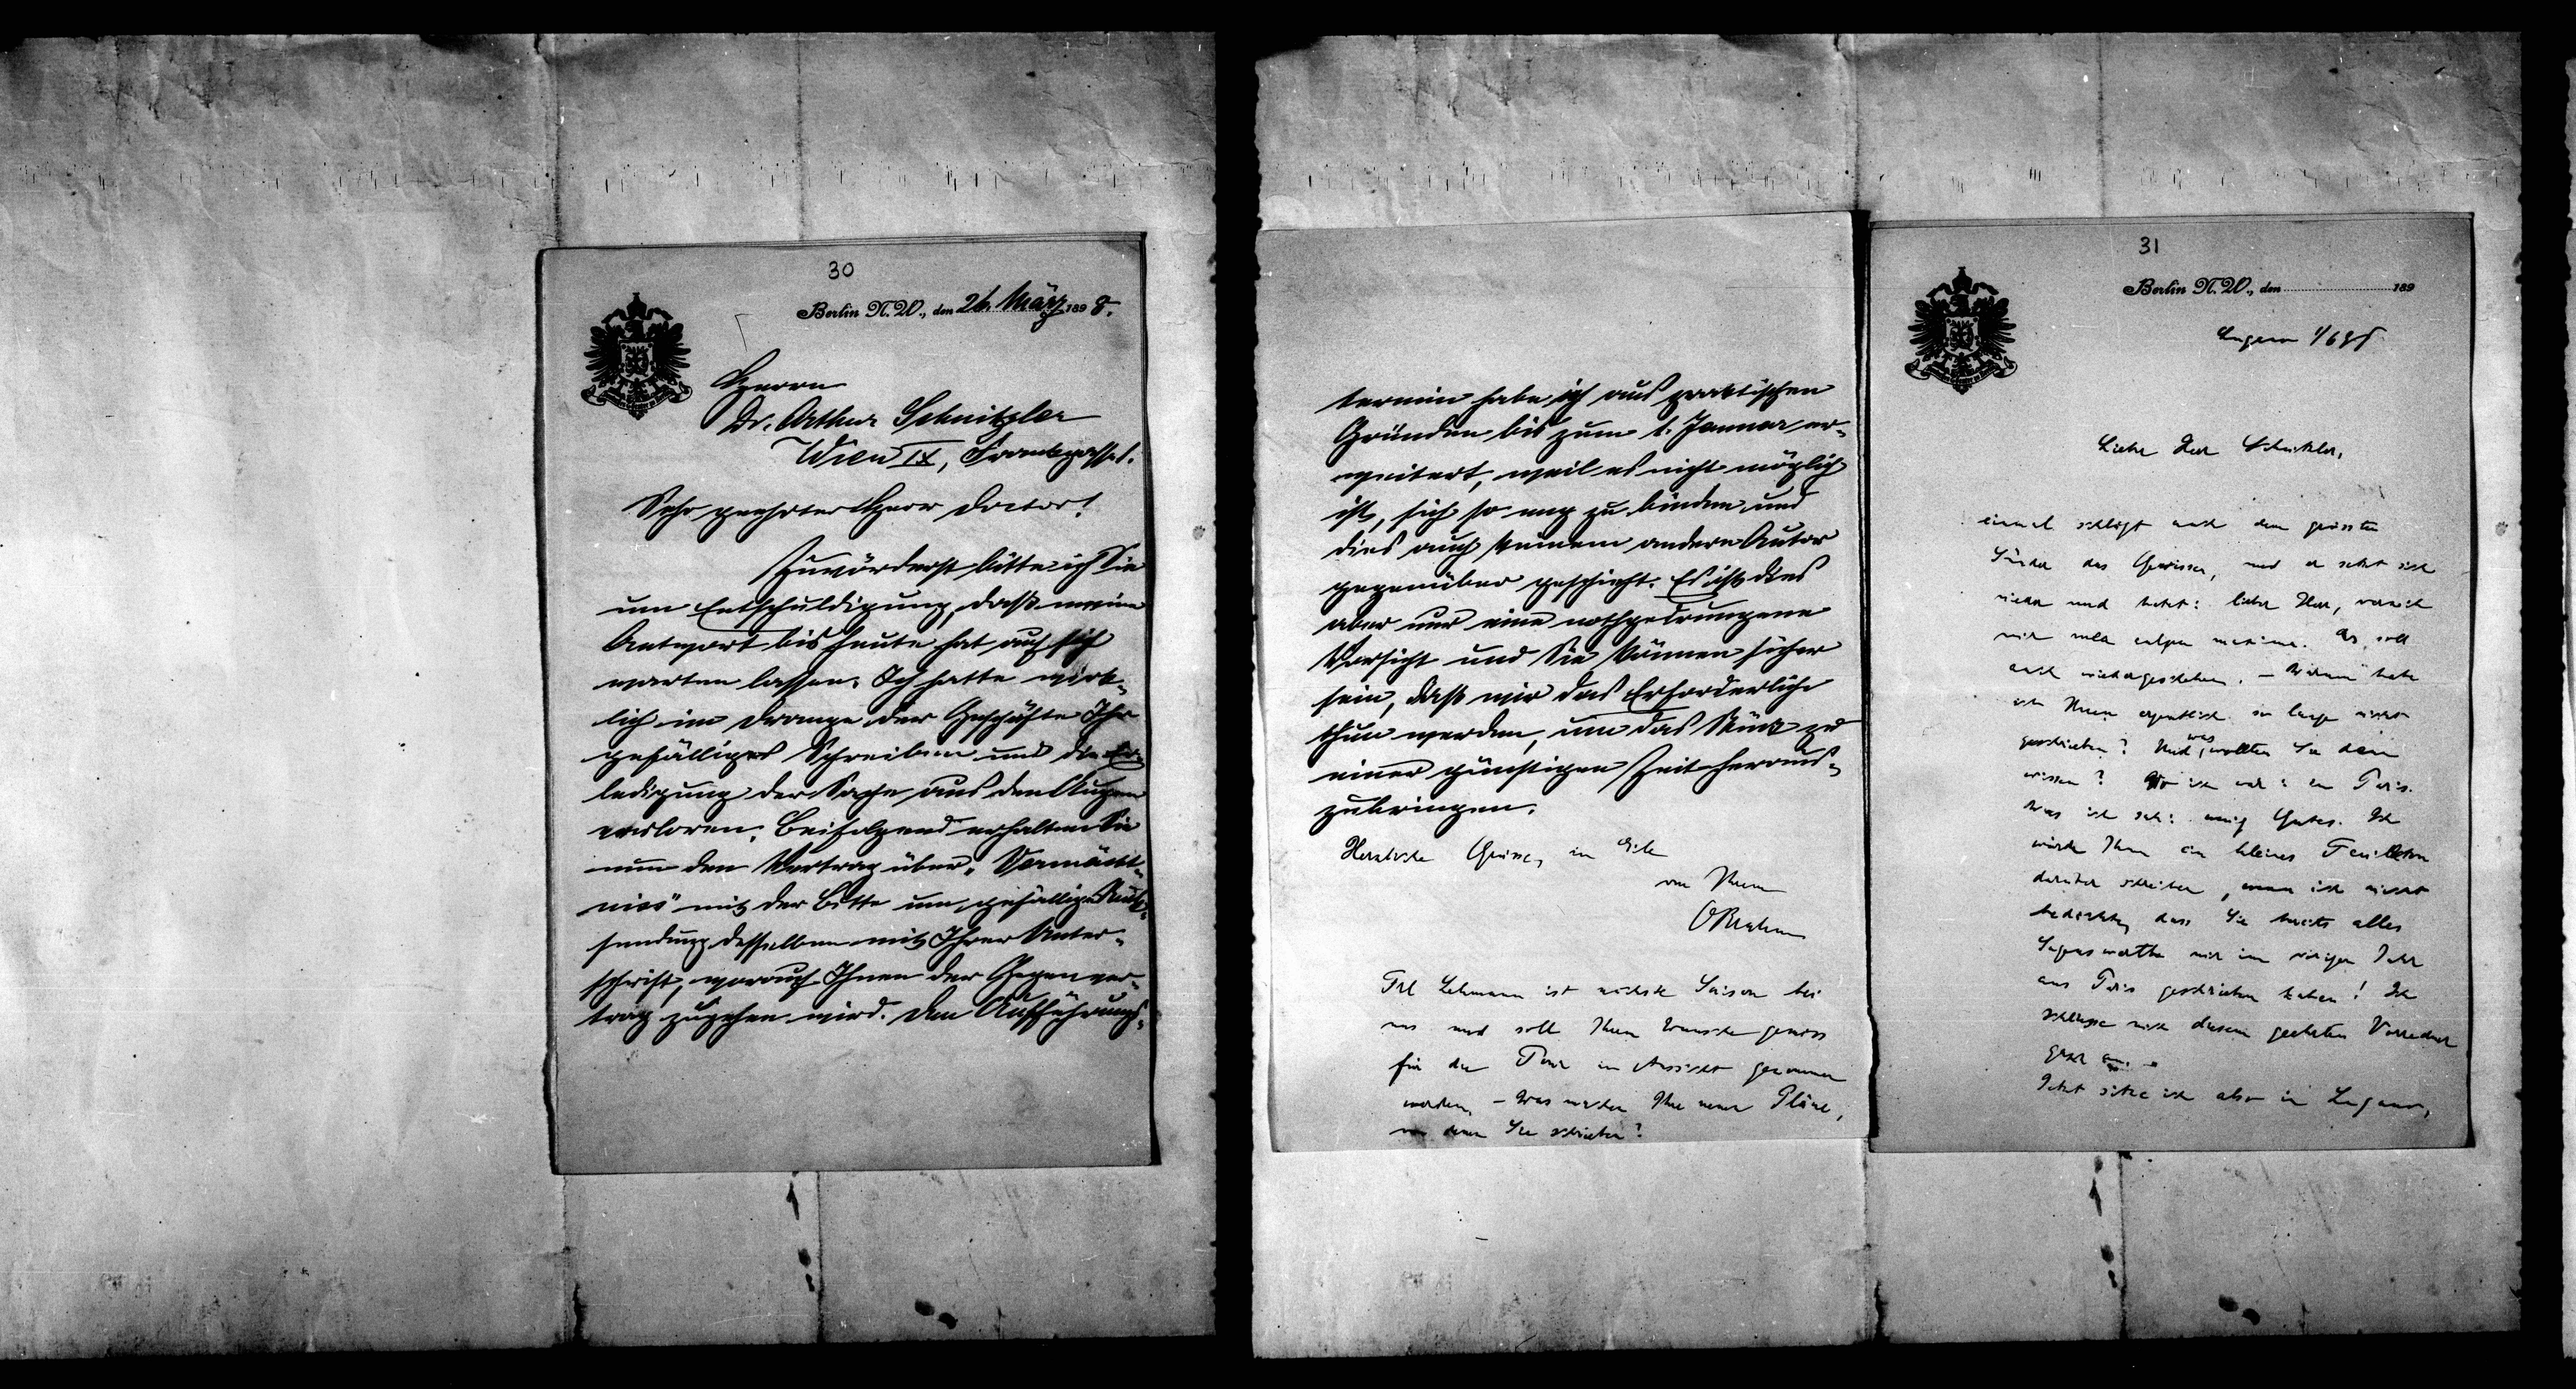 30
Berlin N.W., den 26. März 1898.
Herrn
Dr. Arthur Schnitzler
Wien IX, Frankgasse 1.
Sehr geehrter Herr Doctor!
Zuvörderst bitte ich Sie
um Entschuldigung, daß meine
Antwort bis heute hat auf sich
warten lassen. Ich hatte wirk-
lich im Drange der Geschäfte Ihr
gefälliges Schreiben und die Er-
ledigung der Sache aus den Augen
verloren. Beifolgend erhalten Sie
nun den Vertrag über „Vermächt-
nis" mit der Bitte um gefällige Rück-
sendung desselben mit Ihrer Unter-
schrift, worauf Ihnen der Gegenver-
trag zugehen wird. Den Aufführungs-
termin habe ich aus praktischen
Gründen bis zum 1. Januar er-
weitert, weil es nicht möglich
ist, sich so eng zu binden und
dies auch keinem andern Autor
gegenüber geschieht. Es ist dies
aber nur eine nothgedrungene
Vorsicht und Sie können sicher
sein, daß wir das Erforderliche
thun werden, um das Stück zu
einer günstigen Zeit heraus-
zubringen.
Herzliche Grüsse, in Eile
von Ihrem
OBrahm
Frl Lehmann ist nächste Saison bei
uns und soll Ihrem Wunsche gemäss
für die Toni in Aussicht genommen
werden. – Was machen Ihre neuen Pläne,
von denen Sie schrieben?
31
Berlin N.W., den 189
Lugano 1/6 98
Lieber Herr Schnitzler,
einmal schlägt auch dem grössten
Sünder das Gewissen, und er setzt sich
nieder und betet: lieber Herr, verzeih
mir mea culpa maxima. Es soll
auch nicht wieder geschehen. – Warum habe
ich Ihnen eigentlich so lange nicht
geschrieben? Und was wollten Sie denn
wissen? Wo ich war: in Paris.
Was ich sah: wenig Gutes. Ich
würde Ihnen ein kleines Feuilleton
darüber schreiben, wenn ich nicht
bedächte, dass Sie bereits alles
Sagenswerthe mir im vorigen Jahr
aus Paris geschrieben haben! Ich
schliesse mich diesem geehrten Vorredner
ganz an. –
Jetzt sitze ich also in Lugano,